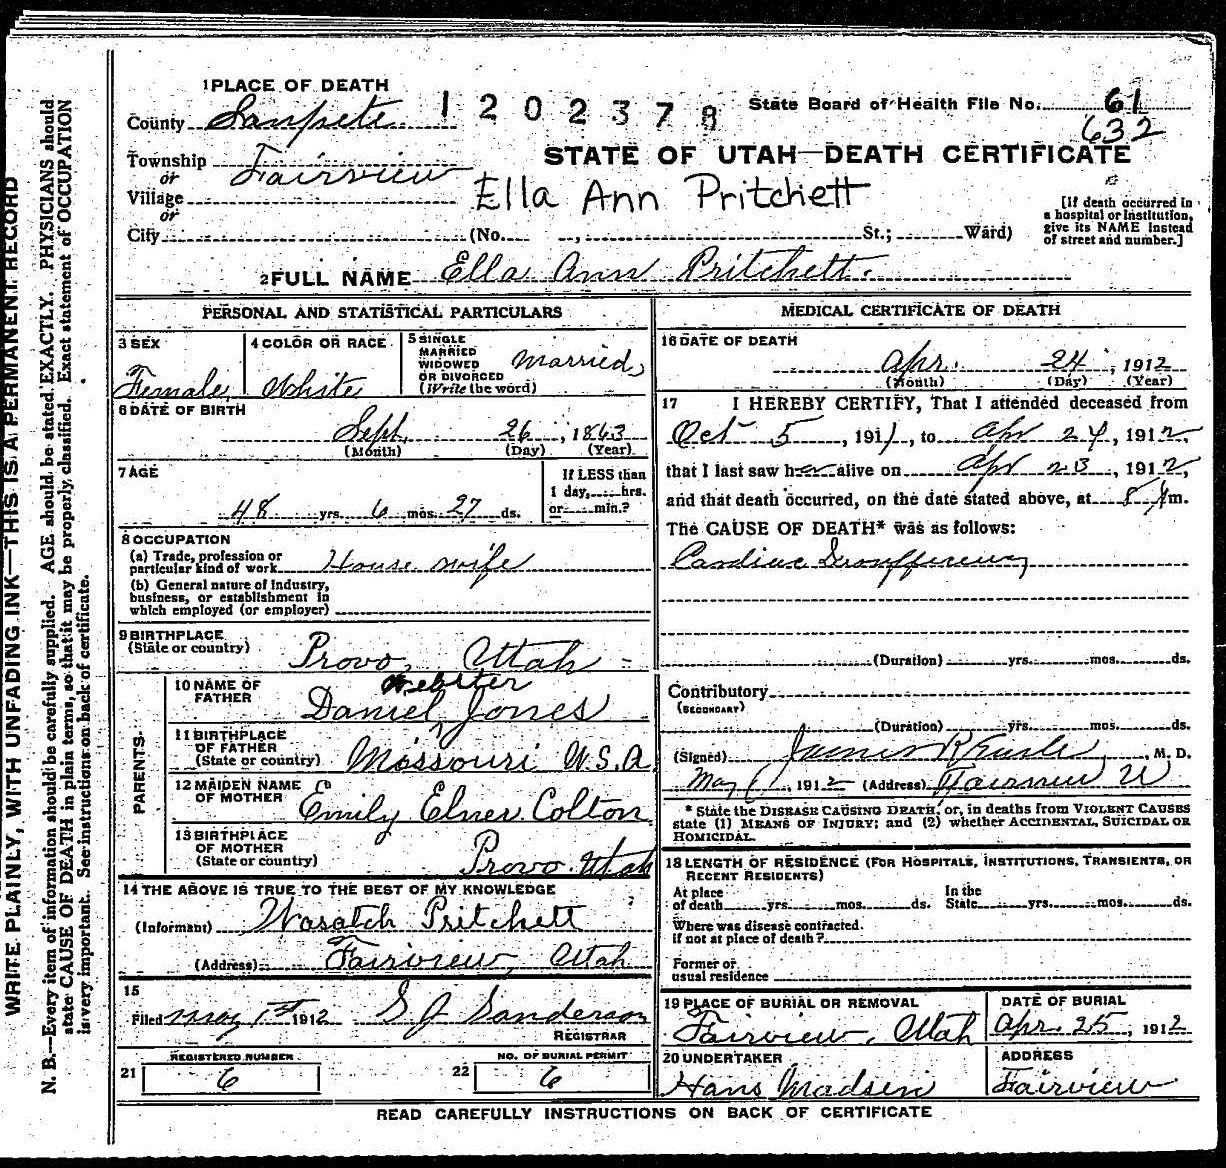 1 PLACE OF DEATH
1202378
State Board of Health File No. 61
632
County Sanpete
STATE OF UTAH—DEATH CERTIFICATE
Township Fairview
or
Village
or
City
Ella Ann Pritchett
(No. , St.; Ward)
[If death occurred in
a hospital or institution,
give its NAME instead
of street and number.]
2 FULL NAME Ella Ann Pritchett.
PERSONAL AND STATISTICAL PARTICULARS
3 SEX
Female
4 COLOR OR RACE
White
5 SINGLE
MARRIED
WIDOWED
OR DIVORCED
(Write the word)
Married
6 DATE OF BIRTH
Sept. 26, 1863
(Month) (Day) (Year)
7 AGE
48 yrs. 6 mos. 27 ds.
If LESS than
1 day, hrs.
or min.?
8 OCCUPATION
(a) Trade, profession or
particular kind of work House wife
(b) General nature of Industry,
business, or establishment in
which employed (or employer)
9 BIRTHPLACE
(State or country)
Provo, Utah
PARENTS.
10 NAME OF
FATHER
Webster
Daniel Jones
11 BIRTHPLACE
OF FATHER
(State or country)
Missouri U.S.A
12 MAIDEN NAME
OF MOTHER
Emily Elner Colton
13 BIRTHPLACE
OF MOTHER
(State or country)
Provo Utah
14 THE ABOVE IS TRUE TO THE BEST OF MY KNOWLEDGE
(Informant) Wasatch Pritchett
(Address) Fairview, Utah
15
Filed May 1st 1912 S J Sanderson
REGISTRAR
21
REGISTERED NUMBER
6
22
NO. OF BURIAL PERMIT
6
MEDICAL CERTIFICATE OF DEATH
16 DATE OF DEATH
Apr. 24, 1912
(Month) (Day) (Year)
17 I HEREBY CERTIFY, That I attended deceased from
Oct 5, 1911, to Apr 24, 1912,
that I last saw her alive on Apr 23, 1912,
and that death occurred, on the date stated above, at 8 A m.
The CAUSE OF DEATH* was as follows:
Cardiac
(Duration) yrs. mos. ds.
Contributory
(SECONDARY)
(Duration) yrs. mos. ds.
(Signed) James , M. D.
May , 1912 (Address) Fairview U
* State the DISEASE CAUSING DEATH, or, in deaths from VIOLENT CAUSES
state (1) MEANS OF INJURY; and (2) whether ACCIDENTAL, SUICIDAL OR
HOMICIDAL.
18 LENGTH OF RESIDENCE (FOR HOSPITALS, INSTITUTIONS, TRANSIENTS, OR
RECENT RESIDENTS)
At place
of death yrs. mos. ds.
In the
State yrs. mos. ds.
Where was disease contracted.
if not at place of death?
Former or
usual residence
19 PLACE OF BURIAL OR REMOVAL
Fairview, Utah
DATE OF BURIAL
Apr. 25, 1912
20 UNDERTAKER
Hans Madsen
ADDRESS
Fairview
READ CAREFULLY INSTRUCTIONS ON BACK OF CERTIFICATE
WRITE PLAINLY, WITH UNFADING INK—THIS IS A PERMANENT RECORD
N. B.—Every item of information should be carefully supplied. AGE should be stated EXACTLY. PHYSICIANS should
state CAUSE OF DEATH in plain terms, so that it may be properly classified. Exact statement of OCCUPATION
is very important. See instructions on back of certificate.